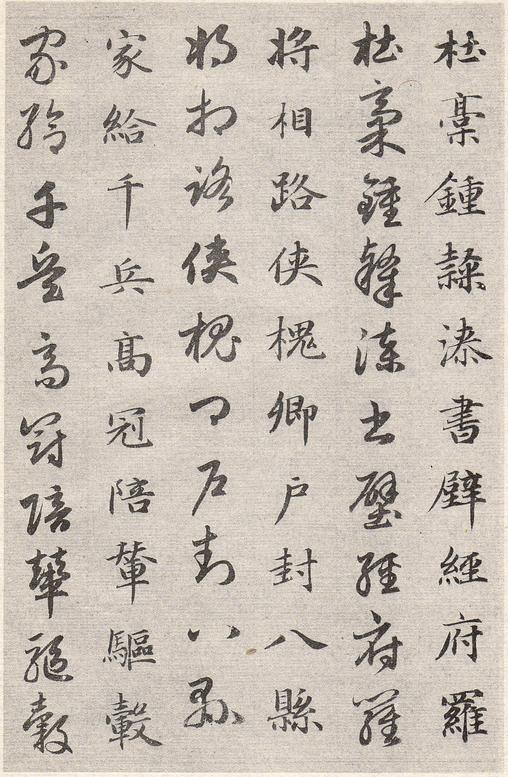 杜稾鍾隷漆書壁經府羅
杜稾鍾隷漆書壁經府羅
將相路俠槐卿户封八縣
將相路俠槐卿户封八縣
家給千兵高冠陪輦驅轂
家給千兵高冠陪輦驅轂